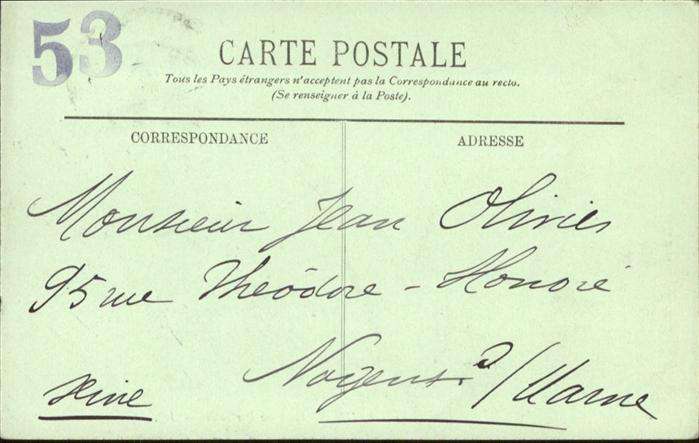 53
CARTE POSTALE
Tous les Pays étrangers n'acceptent pas la Correspondance au recto.
(Se renseigner à la Poste).
CORRESPONDANCE ADRESSE
Monsieur Jean Olivier
95 rue Théodore - Honoré
Nogent s/Marne
Seine